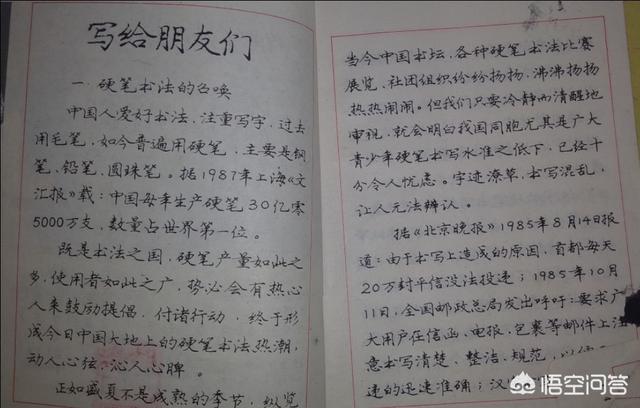 写给朋友们
一、硬笔书法的召唤
中国人爱好书法，注重写字，过去
用毛笔，如今普遍用硬笔，主要是钢
笔、铅笔、圆珠笔。据1987年上海《文
汇报》载：中国每年生产硬笔30亿零
5000万支，数量占世界第一位。
既是书法之国，硬笔产量如此之
多，使用者如此之广，势必会有热心
人来鼓励提倡，付诸行动，终于形
成今日中国大地上的硬笔书法热潮，
动人心弦、沁人心脾。
正如盛夏不是成熟的季节，纵览
当今中国书坛，各种硬笔书法比赛
展览，社团组织纷纷扬扬，沸沸扬扬
热热闹闹。但我们只要冷静而清醒地
审视，就会明白我国同胞尤其是广大
青少年硬笔书写水准之低下，已经十
分令人忧虑。字迹潦草，书写混乱，
让人无法辨认。
据《北京晚报》1985年8月14日报
道：由于书写上造成的原因，首都每天
20万封平信没法投递；1985年10月
11日，全国邮政总局发出呼吁：要求广
大用户在信函、电报、包裹等邮件上注
意书写清楚、整洁、规范，以
速的迅速准确；汉
悟空问答